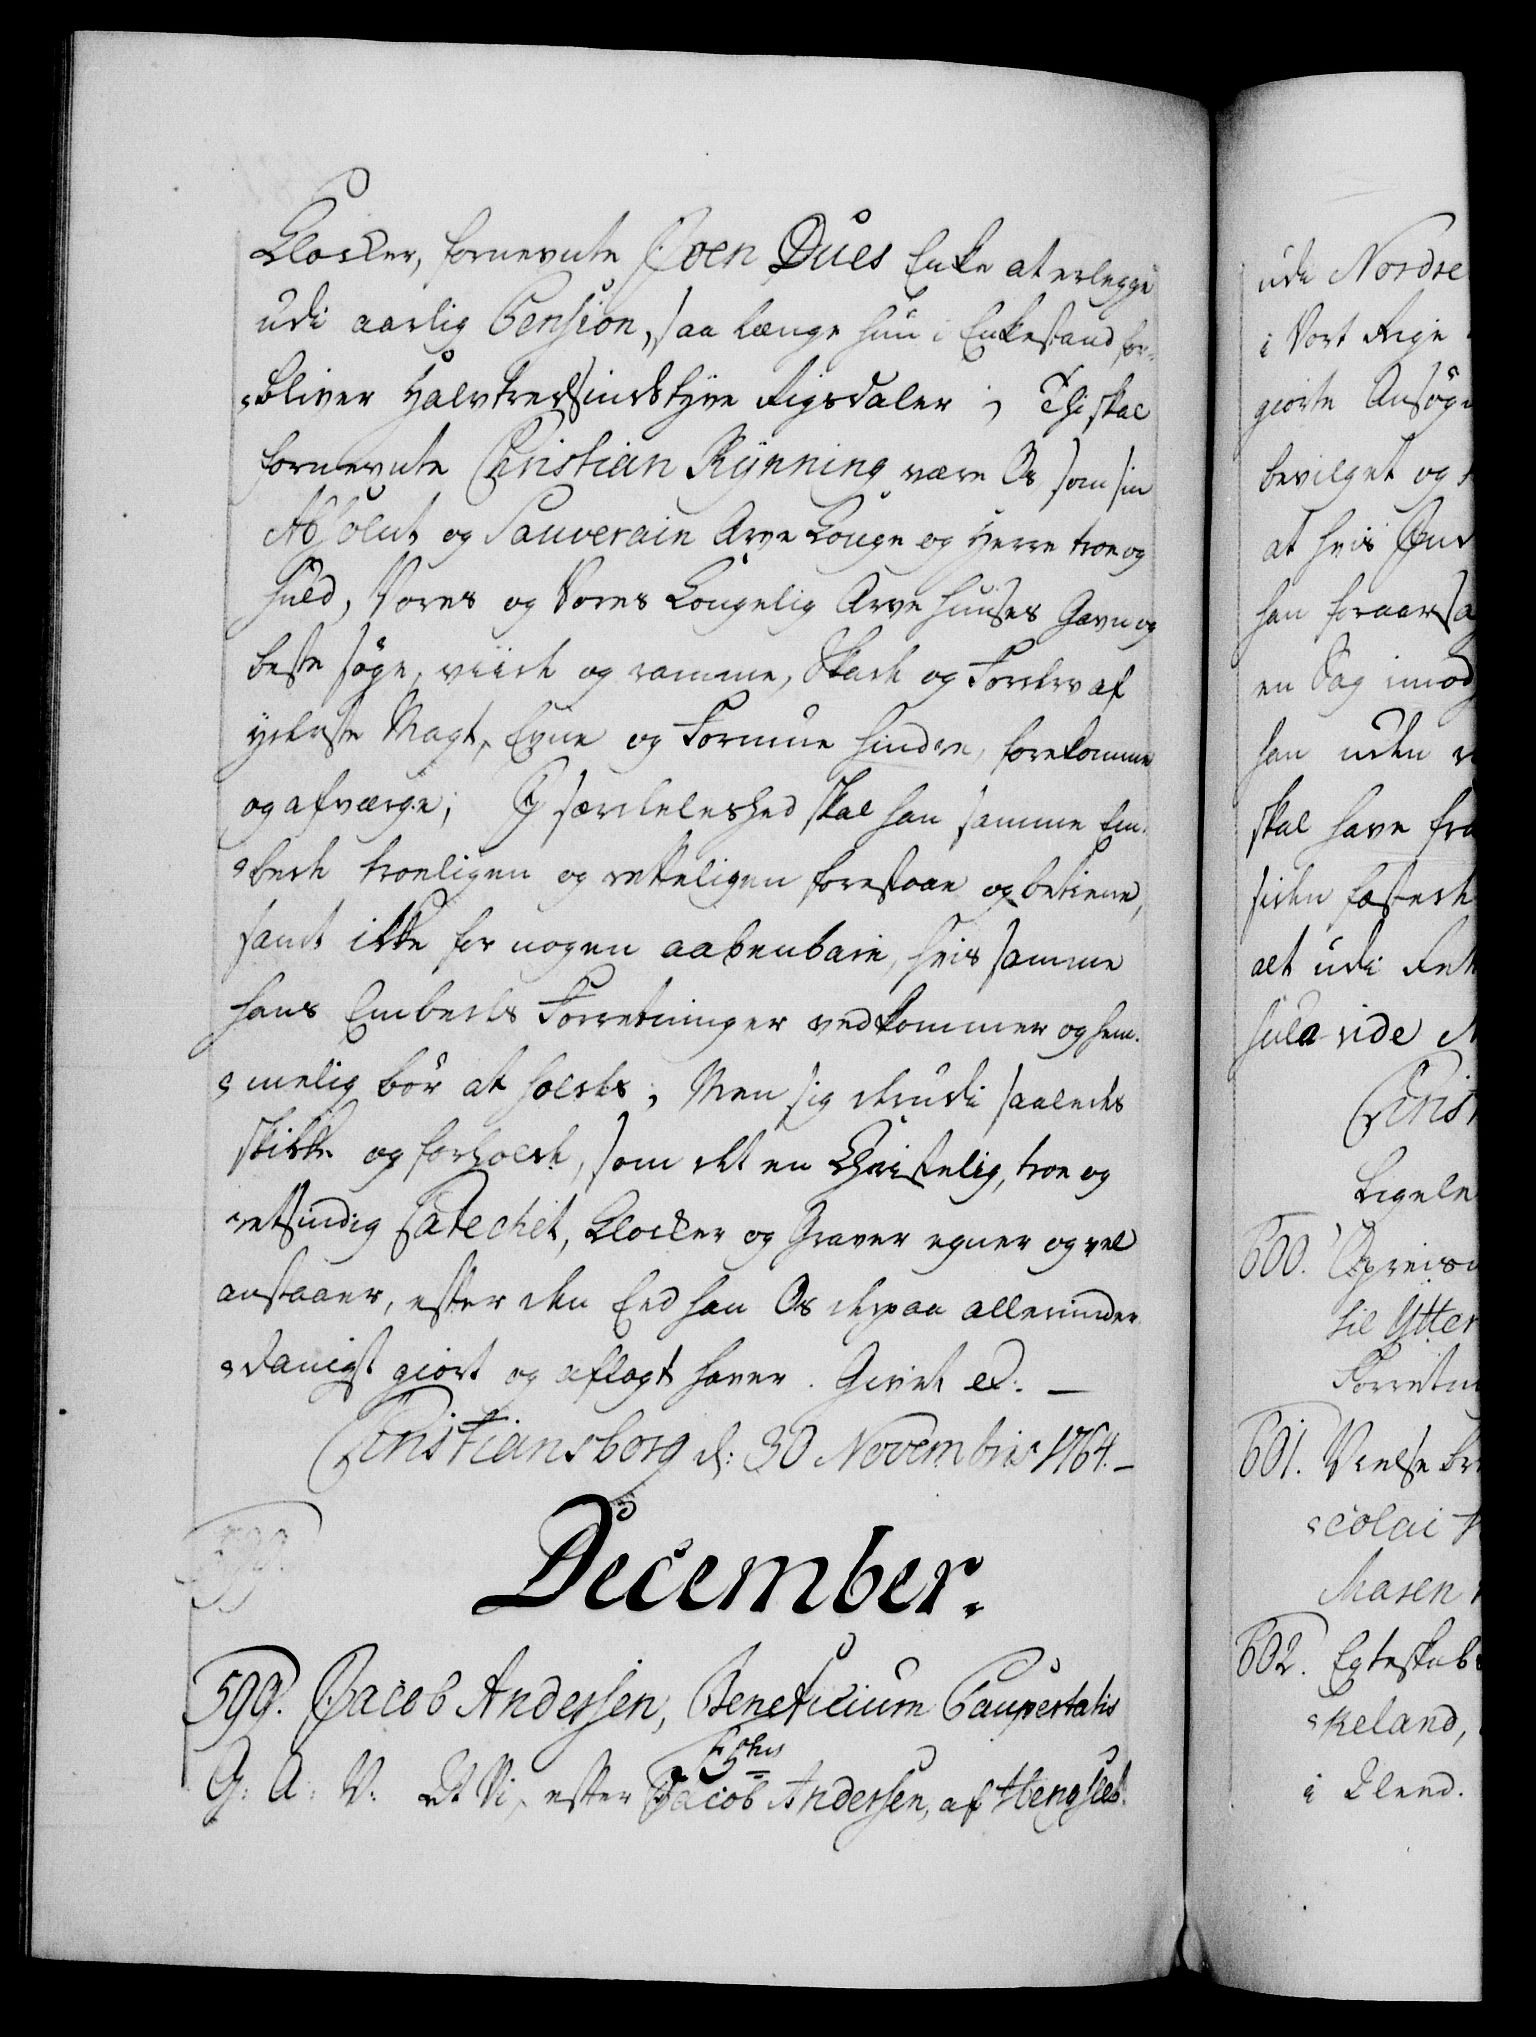 Klocker, fornevnte Joen Dues Enke at erlegge
udi aarlig Pension, saa længe hun i Enkestand for-
bliver Halvtredsindstyve Rigsdaler; Thi skal
fornevnte Christian Rynning være Os som sin
Absolut og Souverain Arve Konge og Herre troe og
huld, Vores og Vores Kongelig Arve Huuses Gavn og
beste søge, viide og ramme, Skade og Forderv af
yderste Magt, Evne og Formue hindre, forekomme
og afværge; I særdeleshed skal han samme Em-
bede troeligen og retteligen forestaae og betiene,
samt ikke for nogen aabenbare, hvis samme
hans Embeds Forretninger vedkommer og hem-
melig bør at holdes; Men sig derudi saaledes
skikke og forholde, som det en Christelig, troe og
retsindig Catechet, Klocker og Graver egner og vel
anstaaer, efter den Eed han Os derpaa allerunder-
danigst giort og aflagt haver. Givet etc. —
Christiansborg d: 30 Novembris 1764. —
December.
599. Jacob Andersen, Beneficium Paupertatis
G: A: V: At Vi, efter Jacob Andersen, af Hengsleb.
udi Nordre
i Vort Rige
giorte Ansøg
bevilget og
at hvis
han foraarsa
en Sag imod
han uden
skal have fra
siden fastede
alt udi Ret
hula vide
Christ
Ligele
600. Opreisn
til Ytter
Forretn
601. Vielse br
colai
Maren
602. Egteskabs
keland,
i Lland.